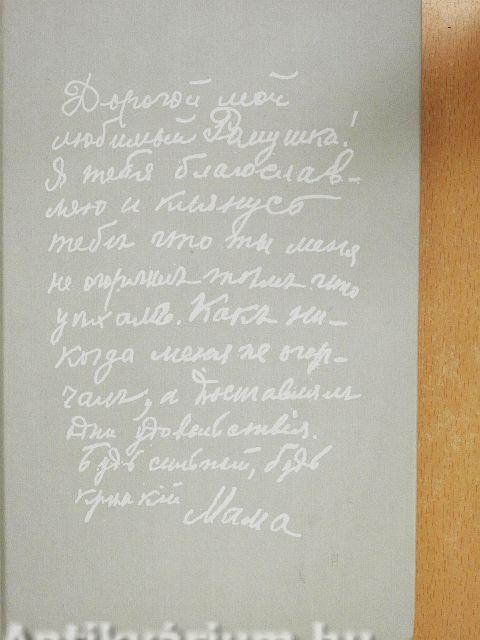 Дорогой мой
любимый Ромушка!
Я тебя благослав-
ляю и клянусь
тебѣ что ты меня
не огорчилъ тѣмъ что
уѣхалъ. Какъ ни-
когда меня не огор-
чалъ, а доставлялъ
одни удовольствія.
Будь сильный, будь
крѣпкій Мама
Antikvárium.hu